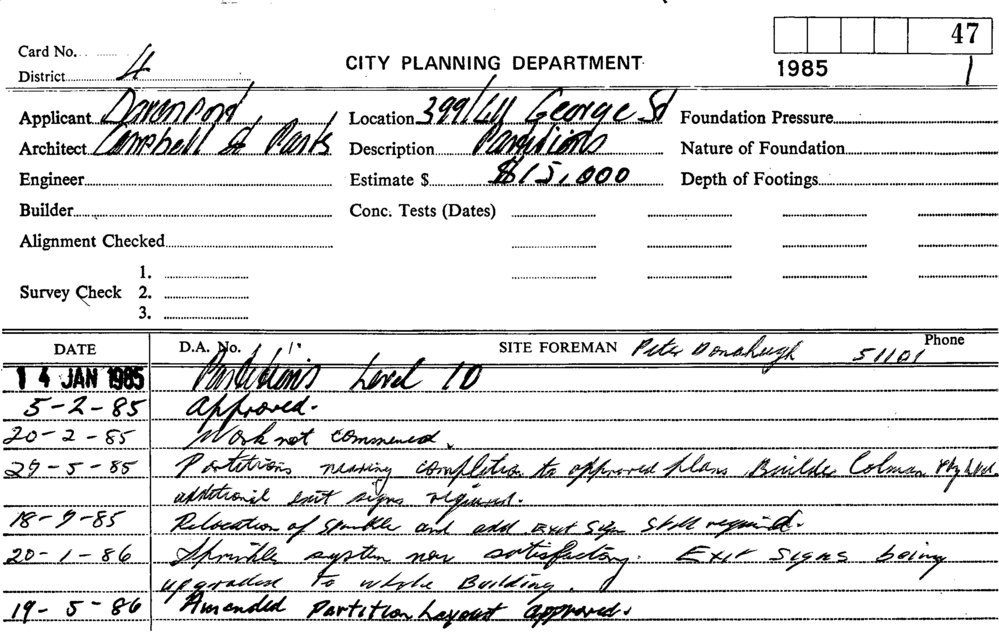 47
Card No.
CITY PLANNING DEPARTMENT
District 4
1985 1
Applicant Davenport Location 399/411 George St Foundation Pressure
Architect Campbell St Parts Description Partitions Nature of Foundation
Engineer Estimate $ $15,000 Depth of Footings
Builder Conc. Tests (Dates)
Alignment Checked
1.
Survey Check 2.
3.
DATE D.A. No. SITE FOREMAN Peter Donahugh 51101 Phone
14 JAN 1985 Partitions Level 10
5-2-85 Approved.
20-2-85 Work not commenced.
29-5-85 Partitions nearing completion to approved plans Builder Colman Pty Ltd.
additional exit signs required.
18-9-85 Relocation of sprinkler and add Exit Sign Still required.
20-1-86 Sprinkler system now satisfactory. Exit Signs being
upgraded to whole Building.
19-5-86 Amended Partition Layout approved.